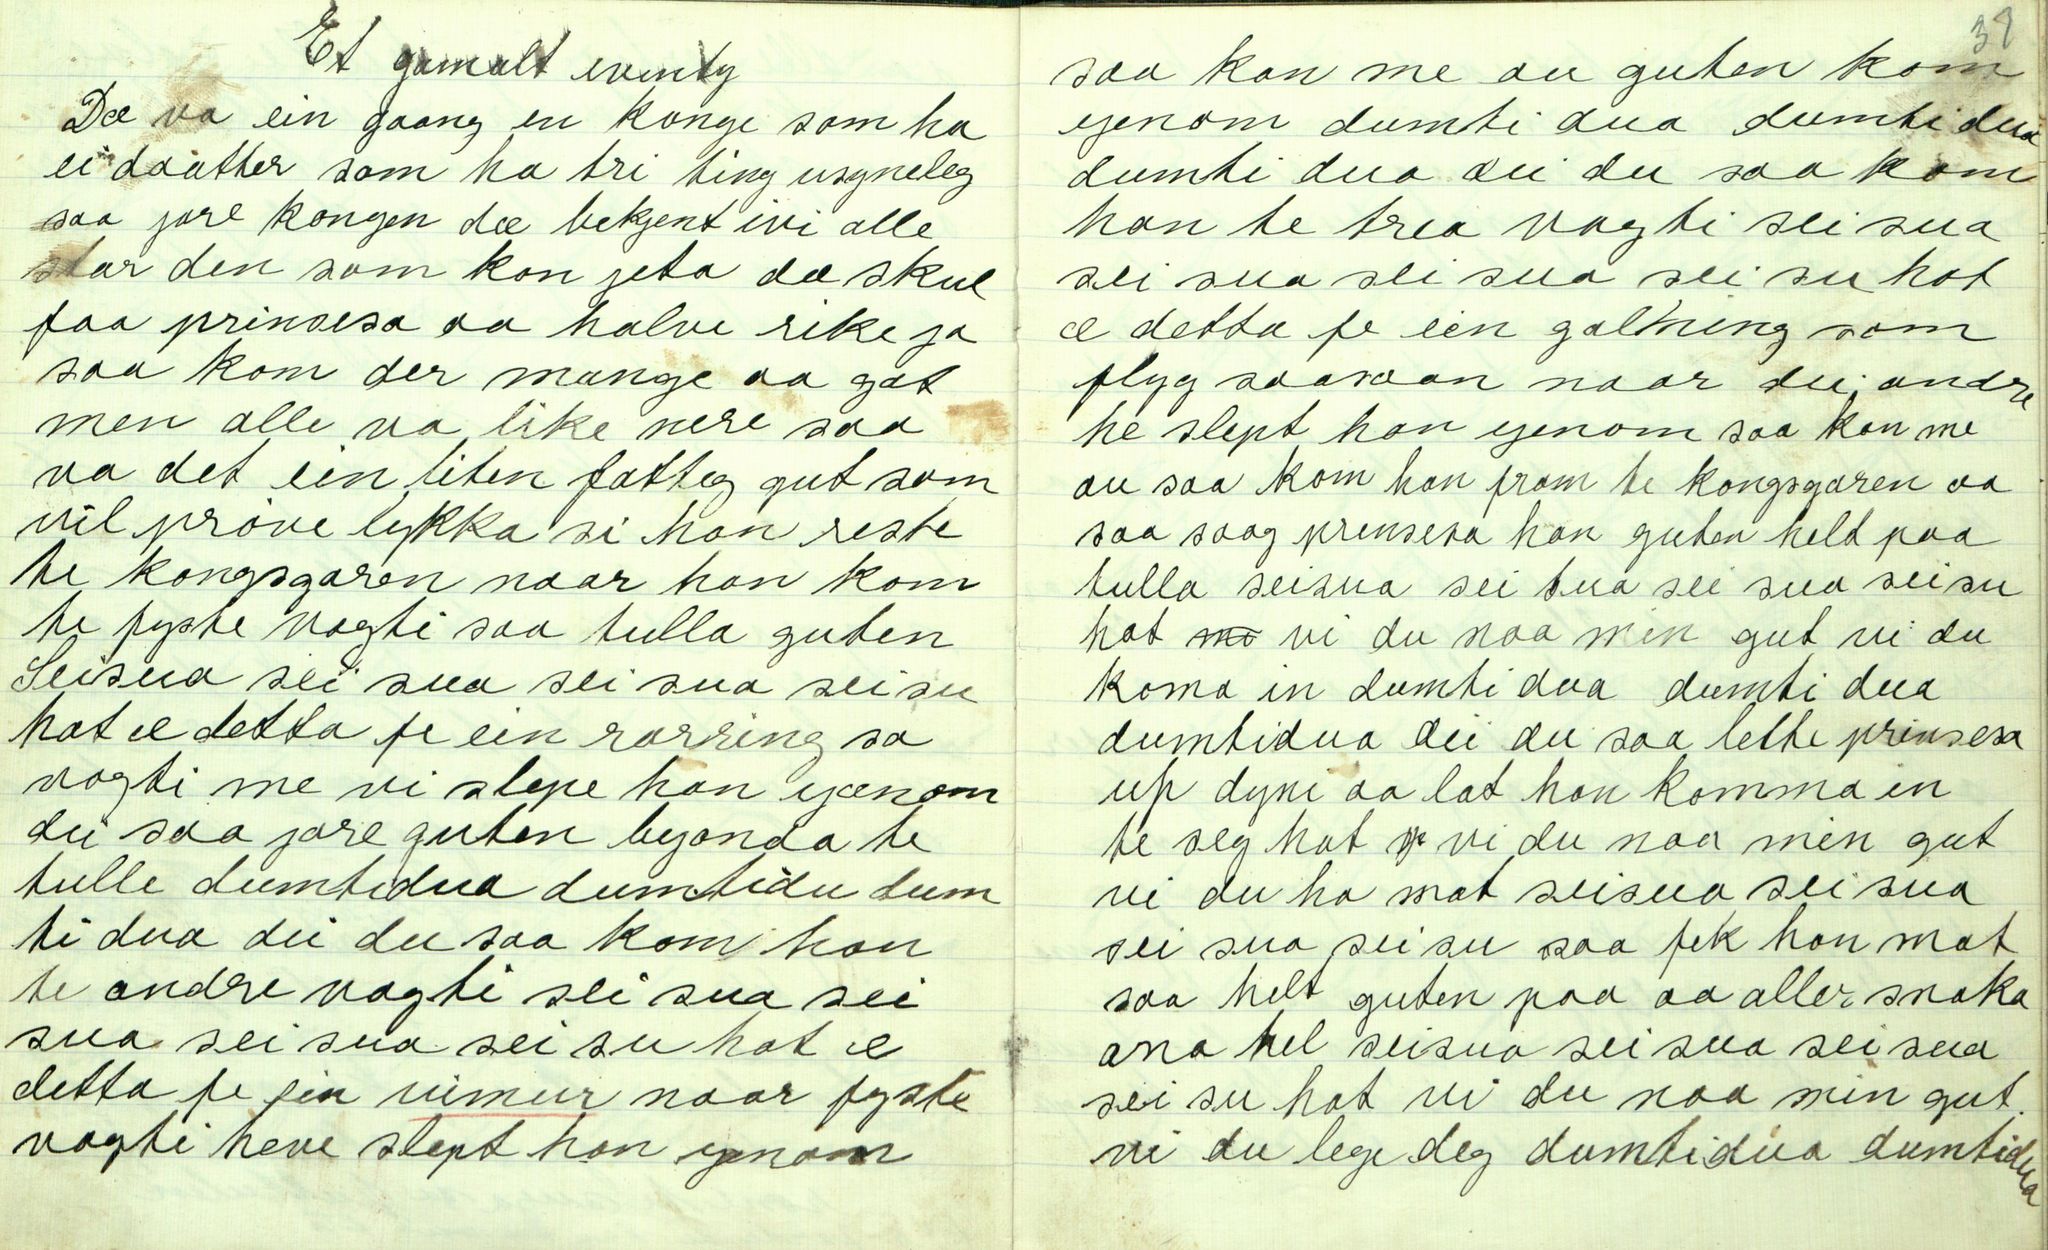 Et gamalt eventy
Dæ va ein gaang en konge som ha
ei daatter som ha tri ting usyneleg
saa jore kongen dæ bekjent ivi alle
star den som kan jeta dæ skul
faa prinsesa aa halve rike ja
saa kom der mange aa gat
men alle va like nere saa
va det ein liten fatteg gut som
vil prøve lykka si han reste
te kongsgaren naar han kom
te fyste vagti saa tulla guten
Seisua sei sua sei sua sei su
hat æ detta fe ein rarring sa
vagti me vi slepe han ejænom
du saa jore guten byonda te
tulle dumtidua dumtidu dum
ti dua dei du saa kom han
te andre vagti sei sua sei
sua sei sua sei su hat æ
detta fe ein uimur naar fyste
vagti heve slept han ejenom
38
saa kan me au guten kom
ejenom dumti dua dumti dua
dumti dua dei du saa kom
han te trea vagti sei sua
sei sua sei sua sei su hat
æ detta fe ein galning som
flyg saasaan naar dei andre
he slept han ejenom saa kan me
au saa kom han fram te kongsgaren aa
saa saag prensesa han guten helt paa
tulla seisua sei sua sei sua sei su
hat vi du naa min gut vi du
koma in dumti dua dumti dua
dumtidua dei du saa lette prinsesa
up dyni aa lat han komma in
te seg hat vi du naa min gut
vi du ha mat seisua sei sua
sei sua sei su saa fek han mat
saa helt guten paa aa aller snaka
ana hel seisua sei sua sei sua
sei su hat vi du naa min gut
vi du lege deg dumtidua dumtidua